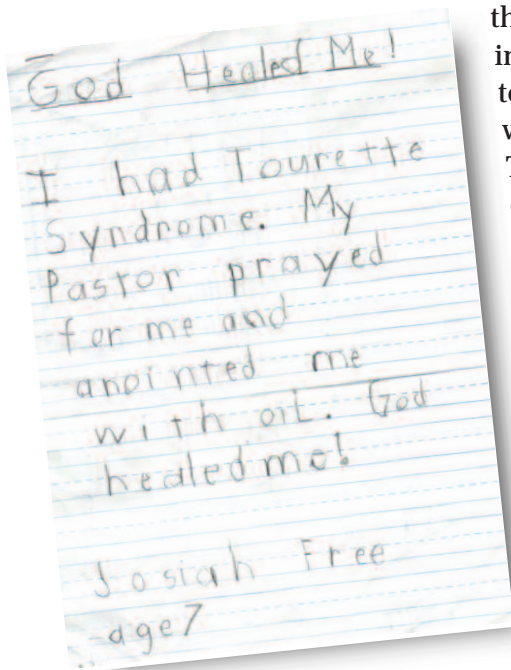 God Healed Me!
I had Tourette
Syndrome. My
Pastor prayed
for me and
anointed me
with oil. God
healed me!
Josiah Free
age 7
th
in
to
w
T